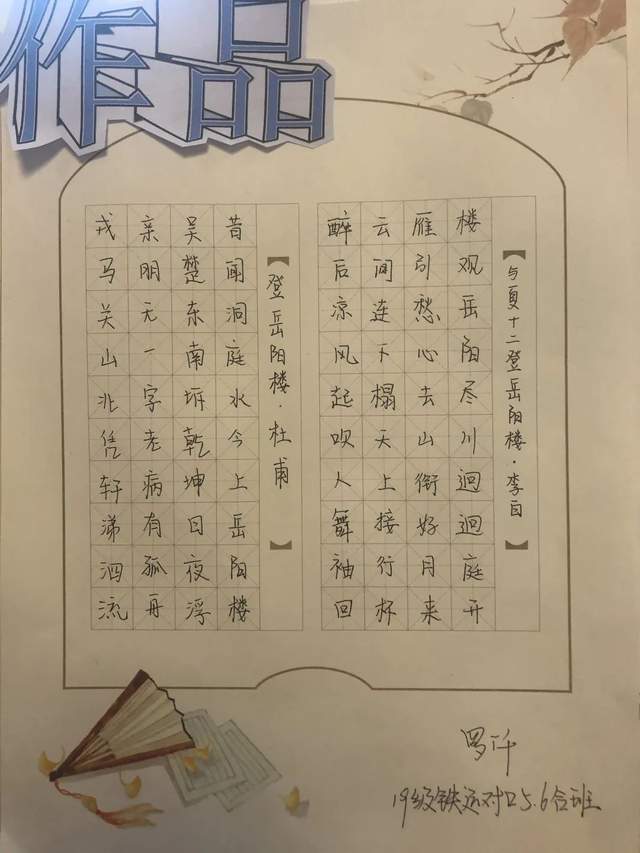 作品
【与夏十二登岳阳楼·李白】
楼观岳阳尽川迴迴庭开
雁引愁心去山衔好月来
云间连下榻天上接行杯
醉后凉风起吹人舞袖回
【登岳阳楼·杜甫】
昔闻洞庭水今上岳阳楼
吴楚东南坼乾坤日夜浮
亲朋无一字老病有孤舟
戎马关山北凭轩涕泗流
罗
19级铁运对口5.6合班